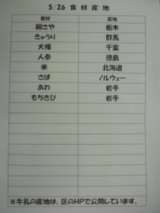 5/26 食材産地
食材 産地
絹さや 栃木
きゅうり 群馬
大根 千葉
人参 徳島
米 北海道
さば ノルウェー
あわ 岩手
もちきび 岩手
※牛乳の産地は、区のHPで公開しています。